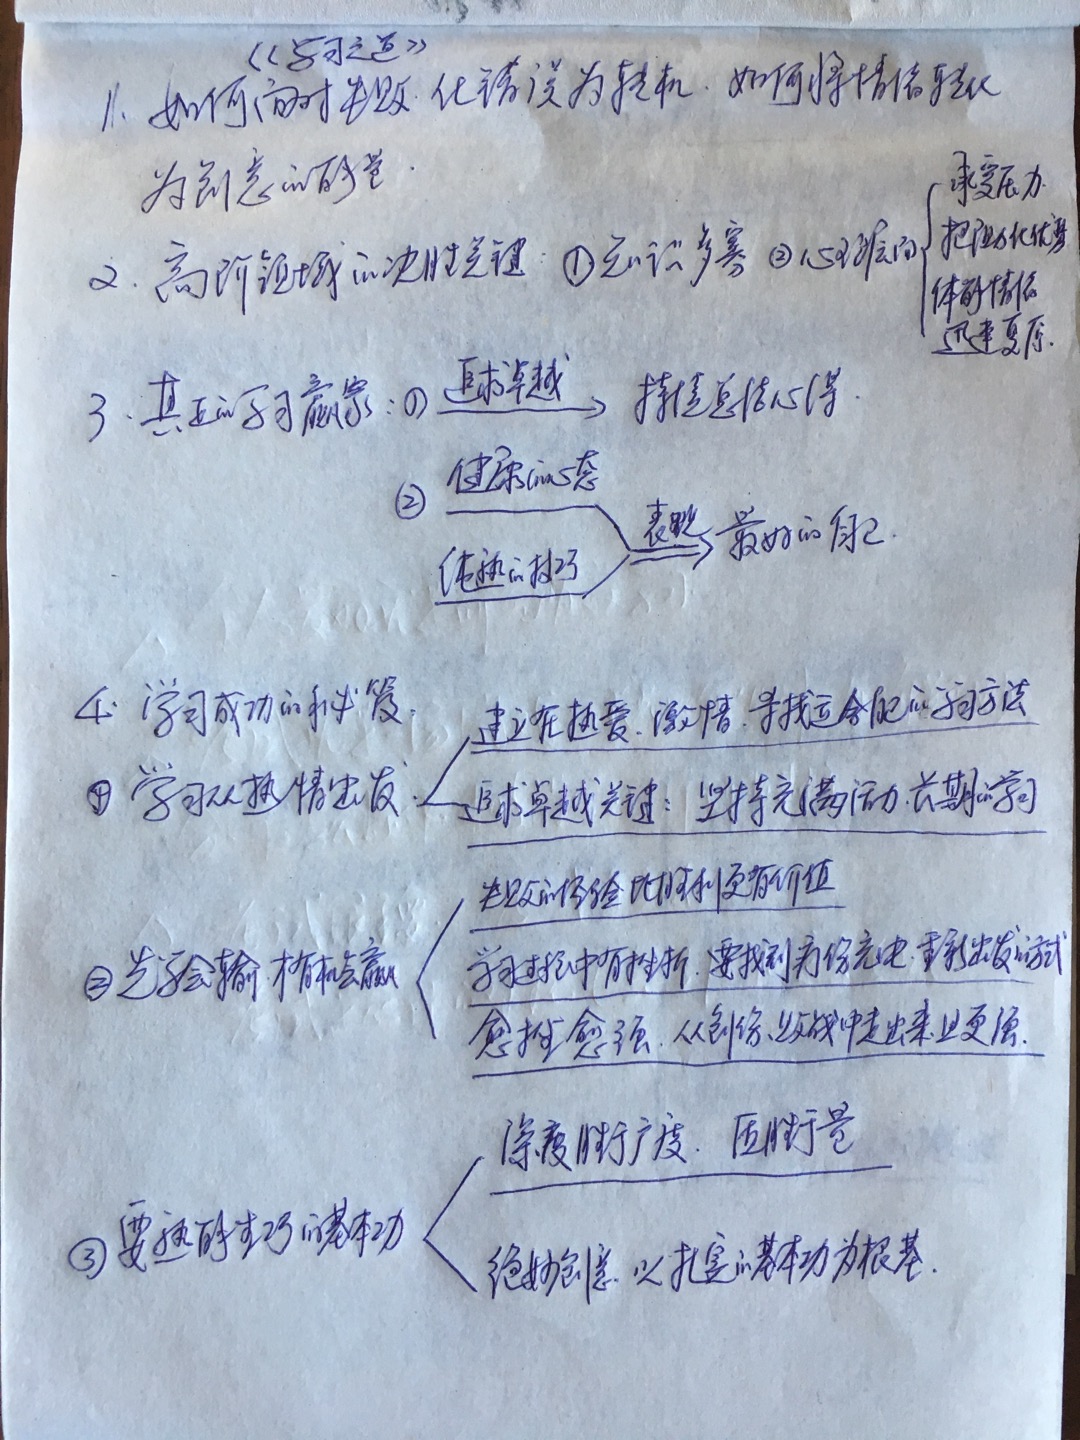 《学习之道》
1. 如何面对失败.化错误为转机.如何将情绪转化
为创意的能量.
2. 高阶领域的决胜关键:①知识多寡 ②心理层面
承受压力.
把阻力化优势
体能情绪
迅速复原.
3. 真正的学习赢家:① 追求卓越 → 持续总结心得.
② 健康的心态
表现 最好的自己.
纯熟的技巧
4. 学习成功的秘笈.
建立在热爱.激情.寻找适合自己的学习方法
① 学习从热情出发.
追求卓越关键:坚持充满活力.长期的学习
失败的经验比胜利更有价值
② 先学会输.才有机会赢
学习过程中有挫折.要找到充电.重新出发的方式
愈挫愈强.从创伤、败战中走出来且更强.
深度胜于广度.质胜于量
③ 要熟能生巧的基本功
绝妙创意.以扎实的基本功为根基.